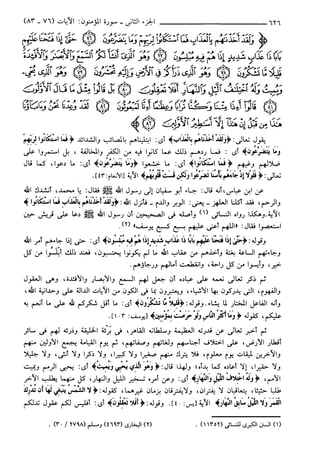 ٦٢٦ الجزء الثاني - سورة المؤمنون: الآيات (٧٦ - ٨٣)
﴿وَلَقَدْ أَخَذْنَاهُم بِالْعَذَابِ فَمَا اسْتَكَانُوا لِرَبِّهِمْ وَمَا يَتَضَرَّعُونَ ﴿٧٦﴾ حَتَّى إِذَا فَتَحْنَا عَلَيْهِم
بَابًا ذَا عَذَابٍ شَدِيدٍ إِذَا هُمْ فِيهِ مُبْلِسُونَ ﴿٧٧﴾ وَهُوَ الَّذِي أَنشَأَ لَكُمُ السَّمْعَ وَالْأَبْصَارَ وَالْأَفْئِدَةَ
قَلِيلًا مَّا تَشْكُرُونَ ﴿٧٨﴾ وَهُوَ الَّذِي ذَرَأَكُمْ فِي الْأَرْضِ وَإِلَيْهِ تُحْشَرُونَ ﴿٧٩﴾ وَهُوَ الَّذِي يُحْيِي
وَيُمِيتُ وَلَهُ اخْتِلَافُ اللَّيْلِ وَالنَّهَارِ أَفَلَا تَعْقِلُونَ ﴿٨٠﴾ بَلْ قَالُوا مِثْلَ مَا قَالَ الْأَوَّلُونَ ﴿٨١﴾
قَالُوا أَإِذَا مِتْنَا وَكُنَّا تُرَابًا وَعِظَامًا أَإِنَّا لَمَبْعُوثُونَ ﴿٨٢﴾ لَقَدْ وُعِدْنَا نَحْنُ وَآبَاؤُنَا
هَذَا مِن قَبْلُ إِنْ هَذَا إِلَّا أَسَاطِيرُ الْأَوَّلِينَ ﴿٨٣﴾
يقول تعالى: ﴿وَلَقَدْ أَخَذْنَاهُم بِالْعَذَابِ﴾ أي: ابتليناهم بالمصائب والشدائد. ﴿فَمَا اسْتَكَانُوا لِرَبِّهِمْ
وَمَا يَتَضَرَّعُونَ﴾ أي: فما ردهم ذلك عما كانوا فيه من الكفر والمخالفة، بل استمروا على
ضلالهم وغيهم ﴿فَمَا اسْتَكَانُوا﴾ أي: ما خشعوا ﴿وَمَا يَتَضَرَّعُونَ﴾ أي: ما دعوا، كما قال
تعالى: ﴿فَلَوْلَا إِذْ جَاءَهُم بَأْسُنَا تَضَرَّعُوا وَلَكِن قَسَتْ قُلُوبُهُمْ﴾ الآية [الأنعام: ٤٣].
عن ابن عباس، أنه قال: جاء أبو سفيان إلى رسول الله ﷺ فقال: يا محمد، أنشدك الله
والرحم، فقد أكلنا العلهز - يعني: الوبر والدم - فأنزل الله: ﴿وَلَقَدْ أَخَذْنَاهُم بِالْعَذَابِ فَمَا اسْتَكَانُوا﴾
الآية. وهكذا رواه النسائي(١) وأصله في الصحيحين أن رسول الله ﷺ دعا على قريش حين
استعصوا فقال: «اللهم أعني عليهم بسبع كسبع يوسف»(٢).
وقوله: ﴿حَتَّى إِذَا فَتَحْنَا عَلَيْهِم بَابًا ذَا عَذَابٍ شَدِيدٍ إِذَا هُمْ فِيهِ مُبْلِسُونَ﴾ أي: حتى إذا جاءهم أمر الله
وجاءتهم الساعة بغتة وأخذهم من عقاب الله ما لم يكونوا يحتسبون، فعند ذلك أبلسوا من كل
خير، وأيسوا من كل راحة، وانقطعت آمالهم ورجاؤهم.
ثم ذكر تعالى نعمه على عباده أن جعل لهم السمع والأبصار والأفئدة، وهي العقول
والفهوم، التي يدركون بها الأشياء، ويعتبرون بما في الكون من الآيات الدالة على وحدانية الله،
وأنه الفاعل المختار لما يشاء. وقوله: ﴿قَلِيلًا مَّا تَشْكُرُونَ﴾ أي: ما أقل شكركم لله على ما أنعم به
عليكم، كقوله ﴿وَمَا أَكْثَرُ النَّاسِ وَلَوْ حَرَصْتَ بِمُؤْمِنِينَ﴾ [يوسف: ١٠٣].
ثم أخبر تعالى عن قدرته العظيمة وسلطانه القاهر، في برئه الخليقة وذرئه لهم في سائر
أقطار الأرض، على اختلاف أجناسهم ولغاتهم وصفاتهم، ثم يوم القيامة يجمع الأولين منهم
والآخرين لميقات يوم معلوم، فلا يترك منهم صغيرا ولا كبيرا، ولا ذكرا ولا أنثى، ولا جليلا
ولا حقيرا، إلا أعاده كما بدأه؛ ولهذا قال: ﴿وَهُوَ الَّذِي يُحْيِي وَيُمِيتُ﴾ أي: يحيي الرمم ويميت
الأمم، ﴿وَلَهُ اخْتِلَافُ اللَّيْلِ وَالنَّهَارِ﴾ أي: وعن أمره تسخير الليل والنهار، كل منهما يطلب الآخر
طلبا حثيثا، يتعاقبان لا يفتران، ولا يفترقان بزمان غيرهما، كقوله: ﴿لَا الشَّمْسُ يَنبَغِي لَهَا أَن تُدْرِكَ
الْقَمَرَ وَلَا اللَّيْلُ سَابِقُ النَّهَارِ﴾ الآية [يس: ٤٠]. وقوله: ﴿أَفَلَا تَعْقِلُونَ﴾ أي: أفليس لكم عقول تدلكم
(١) السنن الكبرى للنسائي (١١٣٥٢). (٢) البخاري (٤٦٩٣) ومسلم (٢٧٩٨ / ٣٠).